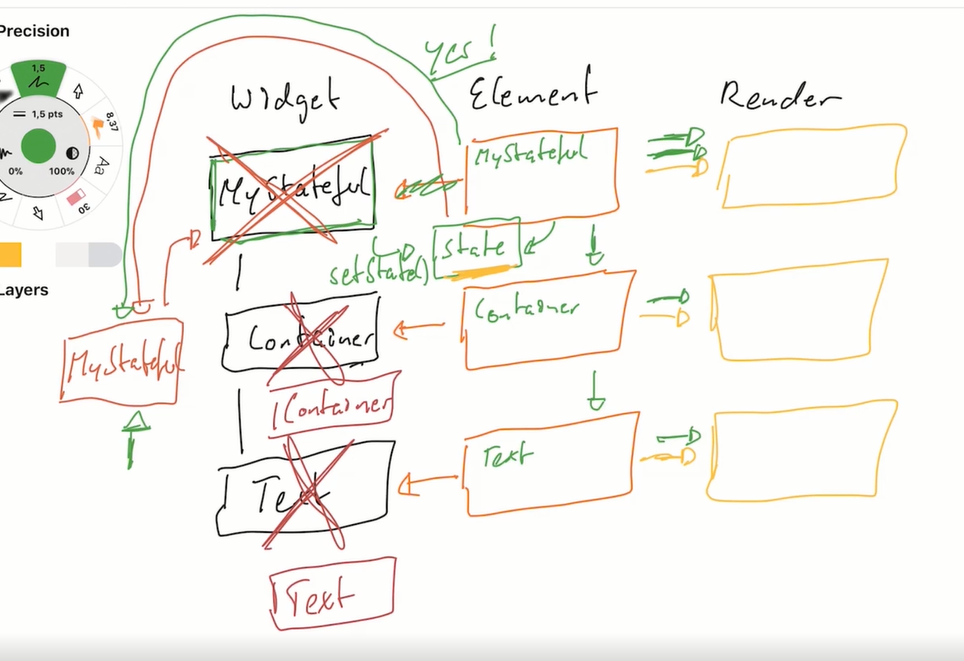 Precision
1,5
1,5 pts
0%
100%
8,37
Aa
30
Layers
yes!
Widget
Element
Render
MyStateful
MyStateful
setState()
State
Container
Container
MyStateful
Container
Text
Text
Text